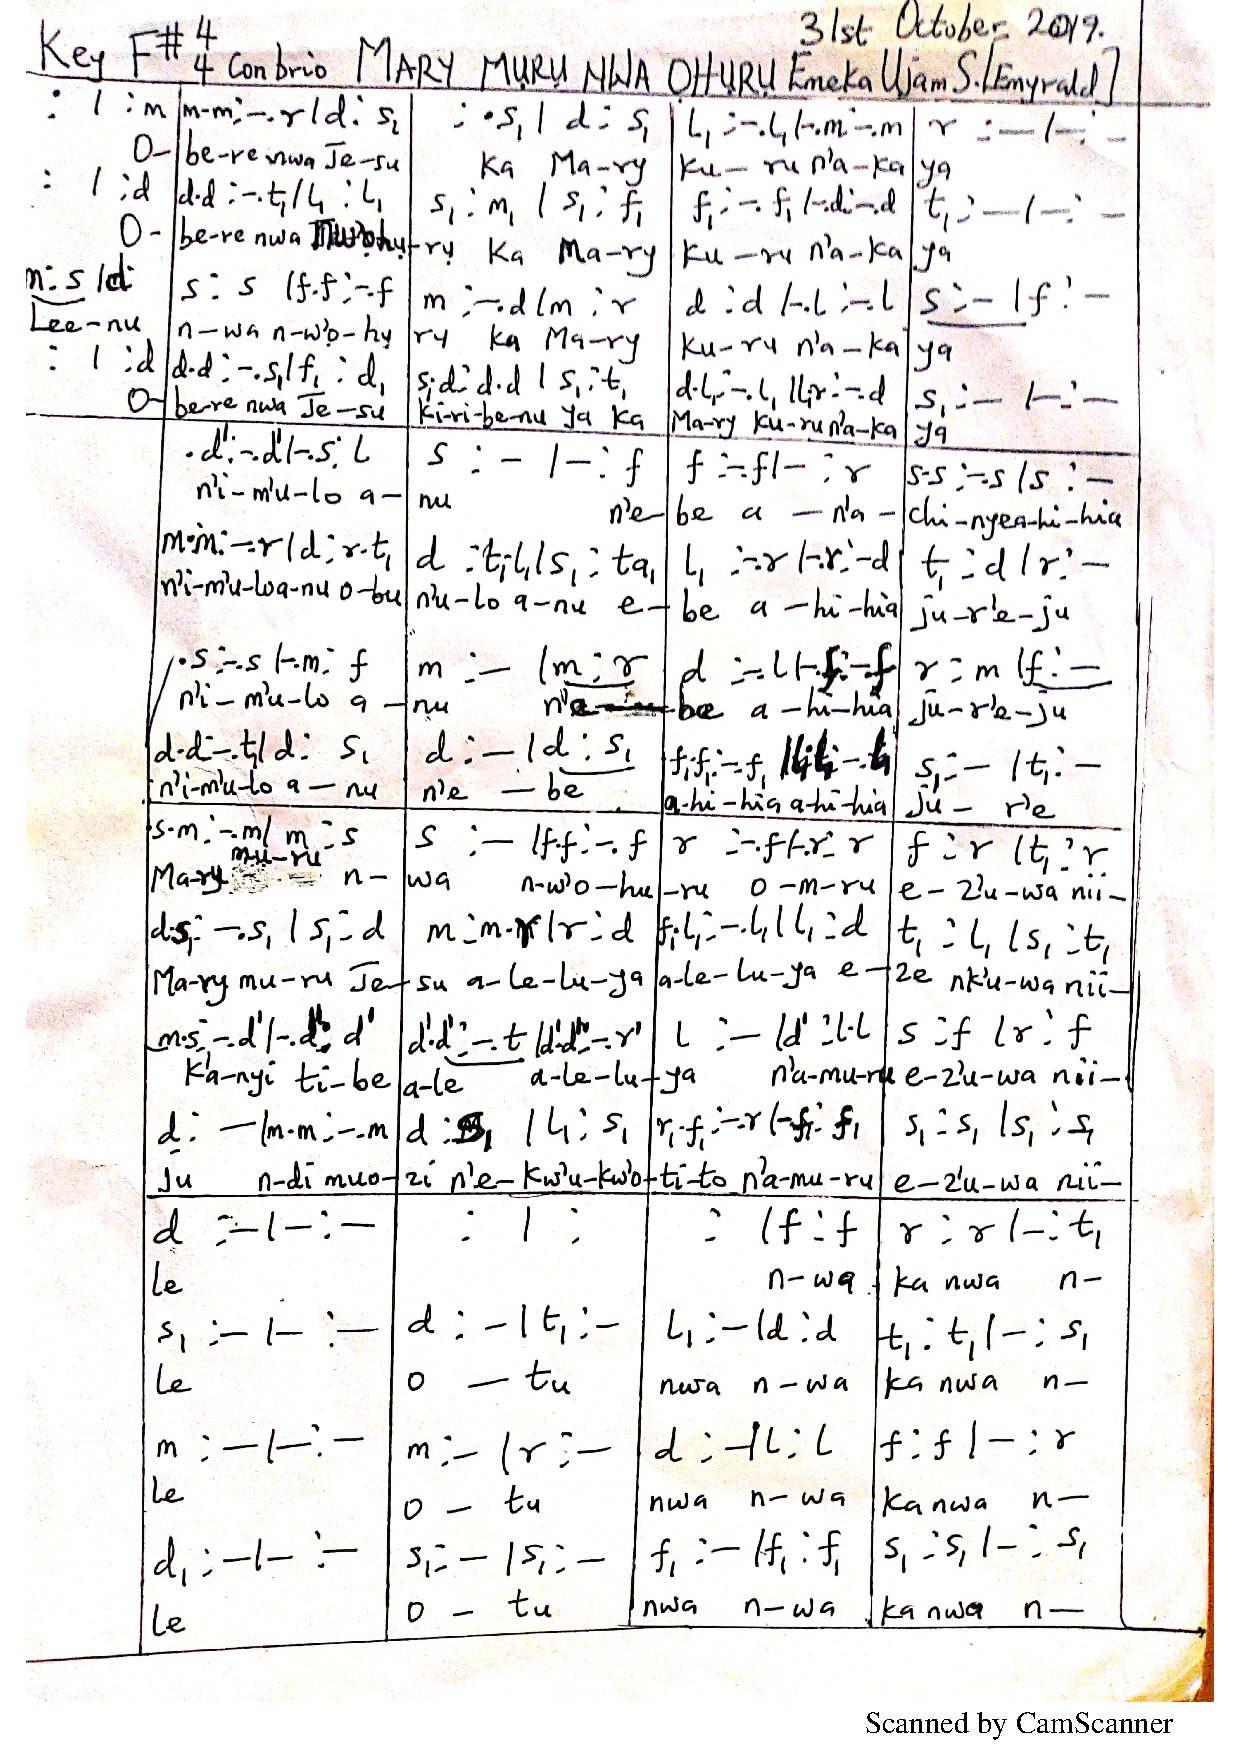 Key F# 4/4 Con brio MARY MỤRỤ NWA ỌHỤRỤ Emeka Ujam S. [Emyrald]
31st October 2019.
: | :m m·m:-.r|d: s₁ : ·s₁| d : s₁ l₁ :-.l₁|-.m:-.m r :-|-: -
O- be-re nwa Je-su Ka Ma-ry Ku- ru n'a-ka ya
: | :d d·d :-.t₁|l₁ : l₁ s₁ : m₁ | s₁ : f₁ f₁ :-. f₁|-.d:-.d t₁ :-|-: -
O- be-re nwa -rỵ Ka Ma-ry Ku -ru n'a-ka ya
m:s |d s : s |f·f :-.f m :-.d|m : r d :d |-.l :-.l s :-|f :-
Lee-nu n-wa n-w'ọ-hụ rụ ka Ma-ry Ku-ru n'a-ka ya
: | :d d·d :-.s₁|f₁ : d₁ s₁·d: d·d | s₁ : t₁ d·l₁:-.l₁ |l₁·r:-.d s₁ :- |-:-
O- be-re nwa Je-su Ki-ri-be-nu ya ka Ma-ry Ku-ru n'a-ka ya
·d':-.d'|-.s: l s : - |-: f f :-.f|- : r s·s :-.s |s :-
n'i-m'u-lo a- nu n'e- be a -n'a- chi-nyea-hi-hia
m·m:-.r|d: r·t₁ d :t₁·l₁|s₁ : ta₁ l₁ :-.r|-.r:-d t₁ : d |r: -
n'i-m'u-loa-nu o-bu n'u-lo a-nu e- be a-hi-hia ju-r'e-ju
·s:-.s |-.m: f m :- |m : r d :-.l|-.f:-.f r : m |f :-
n'i-m'u-lo a- nu n'e be a-hi-hia ju-r'e-ju
d·d:-.t₁| d: s₁ d :- |d : s₁ f₁·f₁:-.f₁ s₁ :- |t₁ :-
n'i-m'u-lo a-nu n'e - be a-hi-hia a-hi-hia ju- r'e
s·m :-.m| m : s s :- |f·f :-.f r :-.f|-.r: r f : r |t₁ : r
Ma-ry mu-ru n- wa n-w'o-hu -ru o-m-ru e- z'u-wa nii-
d·s₁: -.s₁ | s₁ : d m :m·r|r : d f₁·l₁:-.l₁|l₁ :d t₁ : l₁ |s₁ :t₁
Ma-ry mu-ru Je- su a-le-lu-ya a-le-lu-ya e- ze nk'u-wa nii-
m·s:-.d'|-.d': d' d'·d':-.t |d'·d':-.r' l :- |d' :l·l s :f |r : f
Ka-nyi ti-be a-le a-le-lu- ya n'a-mu-ru e-z'u-wa nii-
d: -|m·m:-.m d :s₁ | l₁ : s₁ r₁·f₁ :-.r|-.f₁: f₁ s₁ : s₁ |s₁ : s₁
Ju n-di muo- zi n'e-kw'u-kw'o- ti-to n'a-mu-ru e-z'u-wa nii-
d :-|-:- : | : : |f : f r : r |-: t₁
le n-wa ka nwa n-
s₁ :-|- :- d : -| t₁ :- l₁ :-|d : d t₁ : t₁ |-: s₁
le o - tu nwa n-wa ka nwa n-
m :-|-:- m:- |r :- d :-|l : l f : f |-: r
le o - tu nwa n-wa ka nwa n-
d₁ :-|- :- s₁:- |s₁:- f₁ :-|f₁ : f₁ s₁ : s₁ |-: s₁
le o - tu nwa n-wa ka nwa n-
Scanned by CamScanner